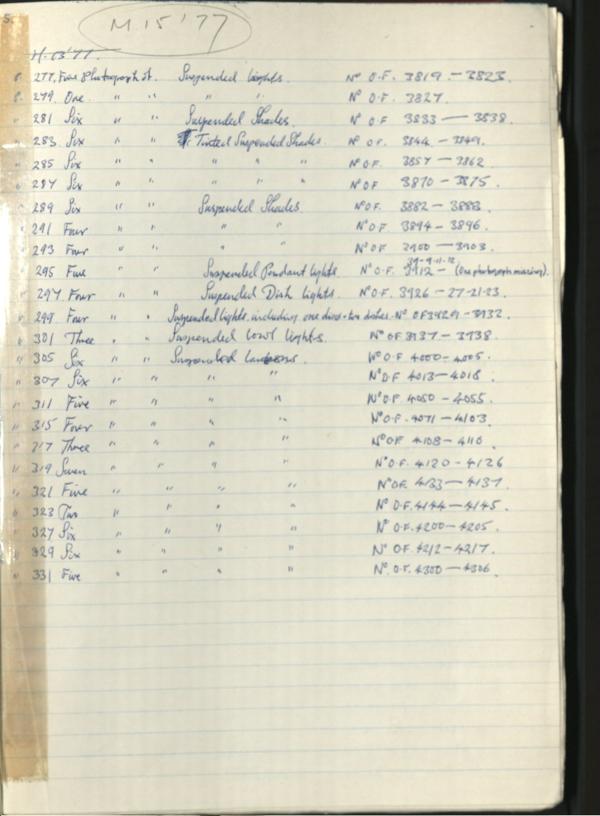 M.15'77
p. 277. Five Photographs of. Suspended Lights. Nº O.F. 3819. — 3823.
p. 279. One. " " " " Nº O.F. 3827.
" 281 Six " " Suspended Shades. Nº O.F 3833 — 3838.
" 283. Six " " Tinted Suspended Shades. Nº O.F. 3844 — 3849.
" 285 Six " " " " " Nº O.F. 3857 — 3862
" 287 Six " " " " " Nº O.F 3870 — 3875
" 289 Six " " Suspended Shades. Nº O.F. 3882 — 3888
" 291 Four " " " " Nº O.F. 3894 — 3896.
" 293 Four " " " " Nº O.F 3900 — 3903.
" 295 Five " " Suspended Pendant lights. Nº O.F. 3912 — (One photograph missing).
" 297 Four " " Suspended Dish Lights. Nº O.F. 3926 — 27-21-23.
" 299 Four " " Suspended lights, including one dishes. Nº OF 3929 — 3932.
" 301 Three " " Suspended bowl lights. Nº OF 3937 — 3938.
" 305 Six " " Suspended Nº O.F 4000 — 4005.
" 307 Six " " " " Nº O.F 4013 — 4018
" 311 Five " " " " Nº O.F. 4050 — 4055.
" 315 Four " " " " Nº O.F. 4071 — 4103
" 317 Three " " " " Nº O.F 4108 — 4110
" 319 Seven " " " " Nº O.F. 4120 — 4126
" 321 Five " " " " Nº O.F. 4133 — 4137.
" 323 Two " " " " Nº O.F. 4144 — 4145.
" 327 Six " " " " Nº O.F. 4200 — 4205.
" 329 Six " " " " Nº O.F. 4212 — 4217.
" 331 Five " " " " Nº O.F. 4300 — 4306.